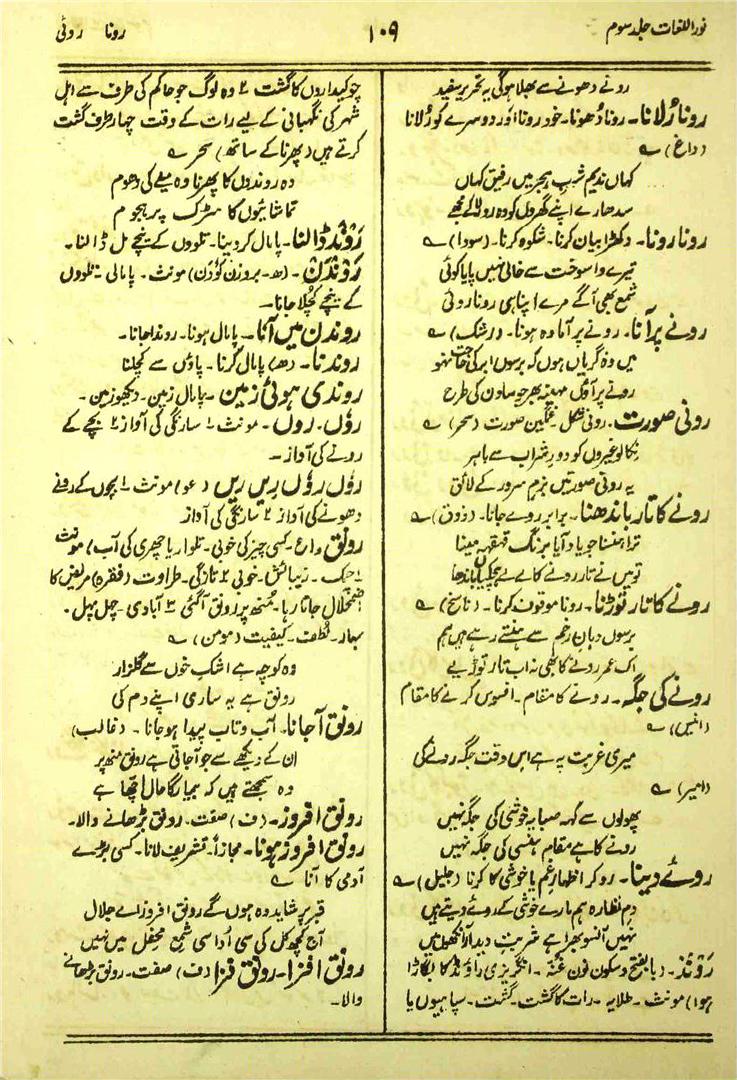 نور اللغات جلد سوم
۱۰۹
رونا روئی
رونے دھونے سے بھلا ہوگی یہ تحریر سفید
رونا رُلانا۔ رونا دُھونا۔ خود رونا اور دوسرے کو رُلانا
(داغ) ؎
کہاں ندیم شبِ ہجر میں رفیق کہاں
سدھارے اپنے گھروں کو وہ رو رلا کے مجھے
رونا رونا۔ دُکھڑا بیان کرنا۔ شکوہ کرنا۔ (سودا) ؎
تیرے واسوخت سے خالی نہیں پایا کوئی
شمع بھی آگے مرے اپنا ہی رونا روئی
رونے پر آنا۔ رونے پر آمادہ ہونا۔ (رشک) ؎
میں وہ گریاں ہوں کہ برسوں ابر کی حاجت نہو
رونے پر آؤں مہینہ بھر جو ساون کی طرح
رونی صورت۔ رونی شکل غمگین صورت (سحر) ؎
نکالو غیروں کو دورِ شراب سے باہر
یہ رونی صورتیں بزمِ سرور کے لائق
رونے کا تار باندھنا۔ برابر روے جانا۔ (ذوق) ؎
ترا ہنسنا جو یاد آیا برنگ قہقہہ مینا
تو میں نے تار رونے کا لے ہچکیاں باندھا
رونے کا تار توڑنا۔ رونا موقوف کرنا۔ (ناسخ) ؎
برسوں دہانِ زخم سے ہنستے رہے ہیں ہم
اک عمر رونے کا بھی نہ اب تار توڑیے
رونے کی جگہ۔ رونے کا مقام۔ افسوس کرنے کا مقام
(انیس) ؎
میری غربت پہ ہے اس وقت جگہ رونے کی
(امیر) ؎
پھولوں سے کہہ صبا یہ خوشی کی جگہ نہیں
رونے کا ہے مقام ہنسی کی جگہ نہیں
روئے دینا۔ رو کر اظہارِ غم یا خوشی کا کرنا (جلیل) ؎
دمِ نظارہ ہم مارے خوشی کے روئے دیتے ہیں
نہیں آنسو بھرا ہے شربتِ دیدار آنکھوں میں
رَونْد۔ (بالفتح و سکون نون غنہ۔ انگریزی راؤنڈ کا بگاڑا
ہوا) مونث۔ طلایہ۔ رات کا گشت۔ گشت۔ سپاہیوں یا
چوکیداروں کا گشت ۲ وہ لوگ جو حاکم کی طرف سے اہل
شہر کی نگہبانی کے لیے رات کے وقت چار طرف گشت
کرتے ہیں (پھرنا کے ساتھ) سحر ؎
وہ روندوں کا پھرنا وہ میلے کی دھوم
تماشائیوں کا سڑک پر ہجوم
رَونْد ڈالنا۔ پامال کر دینا۔ تلووں کے نیچے مل ڈالنا۔
رَونْدَن۔ (ھ۔ بروزن کَوْدَن) مونث۔ پامالی۔ تلووں
کے نیچے کُچلا جانا۔
روندن میں آنا۔ پامال ہونا۔ روندا جانا۔
روندنا۔ (ھ) پامال کرنا۔ پاؤں سے کچلنا
روندی ہوئی زمین۔ پامال زمین۔ دیکھو زمین۔
روں۔ روں۔ مونث ۱ سارنگی کی آواز ۲ بچے کے
رونے کی آواز۔
روں روں ریں ریں (عو) مونث ۱ بچوں کے رونے
دھونے کی آواز ۲ سارنگی کی آواز
رونق (ع۔ کسی چیز کی خوبی۔ تلوار یا چھری کی آب) مونث
۱ چمک۔ زیبائش۔ خوبی ۲ تازگی۔ طراوت (فقرہ) مریض کا
اضمحلال جاتا رہا۔ منھ پر رونق آگئی ۳ آبادی۔ چہل پہل۔
بہار۔ لطف۔ کیفیت (مومن) ؎
وہ کوچہ ہے اشک خوں سے گلزار
رونق ہے یہ ساری اپنے دم کی
رونق آجانا۔ آب و تاب پیدا ہو جانا۔ (غالب)
ان کے دیکھے سے جو آجاتی ہے رونق منھ پر
وہ سمجھتے ہیں کہ بیمار کا حال اچھا ہے
رونق افروز۔ (ف) صفت۔ رونق بڑھانے والا۔
رونق افروز ہونا۔ مجازاً۔ تشریف لانا۔ کسی بڑے
آدمی کا آنا ؎
قبر پر شاید وہ ہوں گے رونق افروز اے جلال
آج کچھ کل کی سی اُداسی شمع محفل میں نہیں
رونق افزا۔ رونق فزا (ف) صفت۔ رونق بڑھانے
والا۔